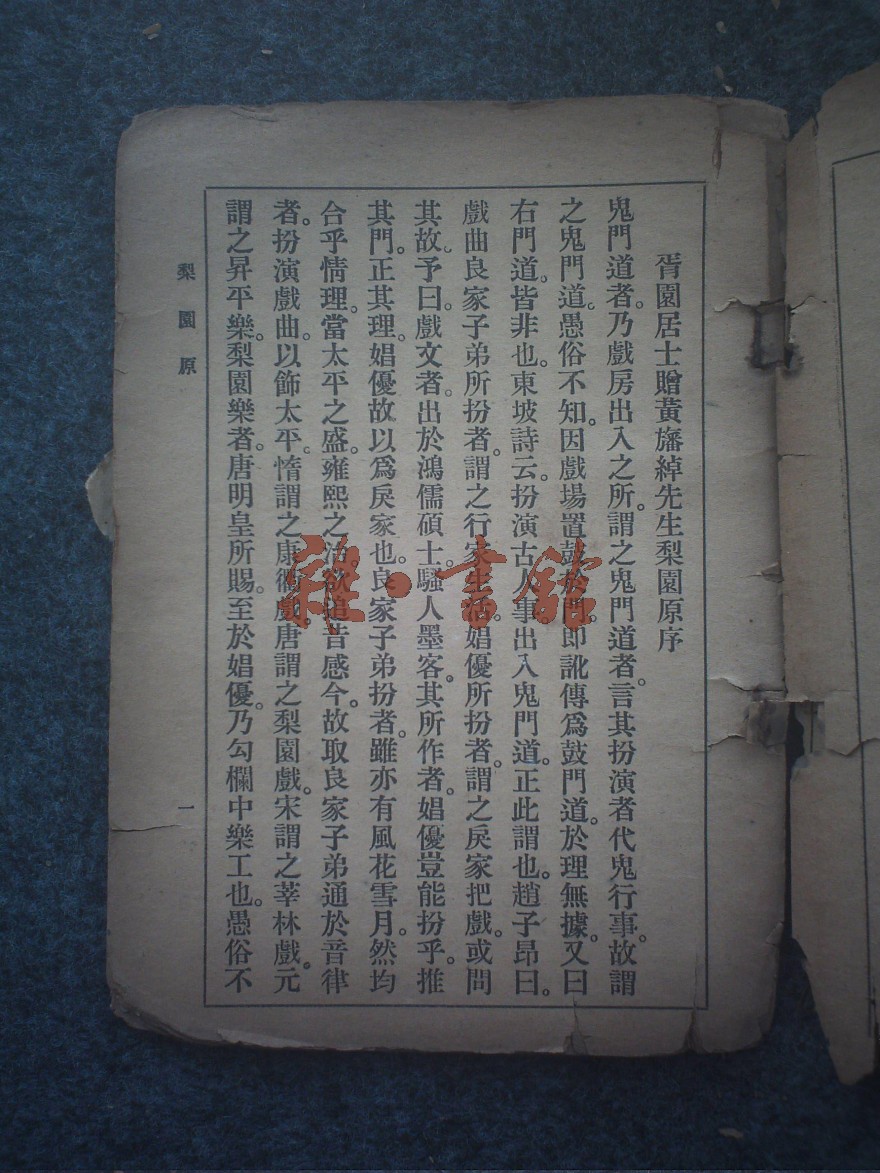 胥園居士贈黃旛綽先生梨園原序
鬼門道者。乃戲房出入之所。謂之鬼門道者。言其扮演者代鬼行事。故謂
之鬼門道。愚俗不知。因戲場置鼓於門。即訛傳爲鼓門道。於理無據。又曰
右門道。皆非也。東坡詩云。扮演古人事。出入鬼門道。正此謂也。趙子昂曰。
戲曲良家子弟所扮者。謂之行家生活。娼優所扮者。謂之戾家把戲。或問
其故。予曰。戲文者。出於鴻儒碩士。騷人墨客。其所作者。娼優豈能扮乎。推
其門。正其理。娼優故以爲戾家也。良家子弟扮者。雖亦有風花雪月。然均
合乎情理。當太平之盛。雍熙之治。欲追昔感今。故取良家子弟通於音律
者。扮演戲曲。以飾太平。惰謂之康衢戲。唐謂之梨園戲。宋謂之莘林戲。元
謂之昇平樂。梨園樂者。唐明皇所賜。至於娼優。乃勾欄中樂工也。愚俗不
梨園原
一
雜·書館